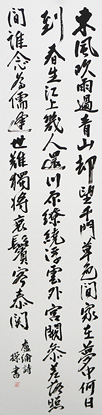 東風吹雨過青山却望千門草色閒家在夢中何日
到春生江上幾人還川原繚繞浮雲外宮闕參差落照
間誰念為儒逢世難獨將衰鬢客秦関
盧倫詩
書